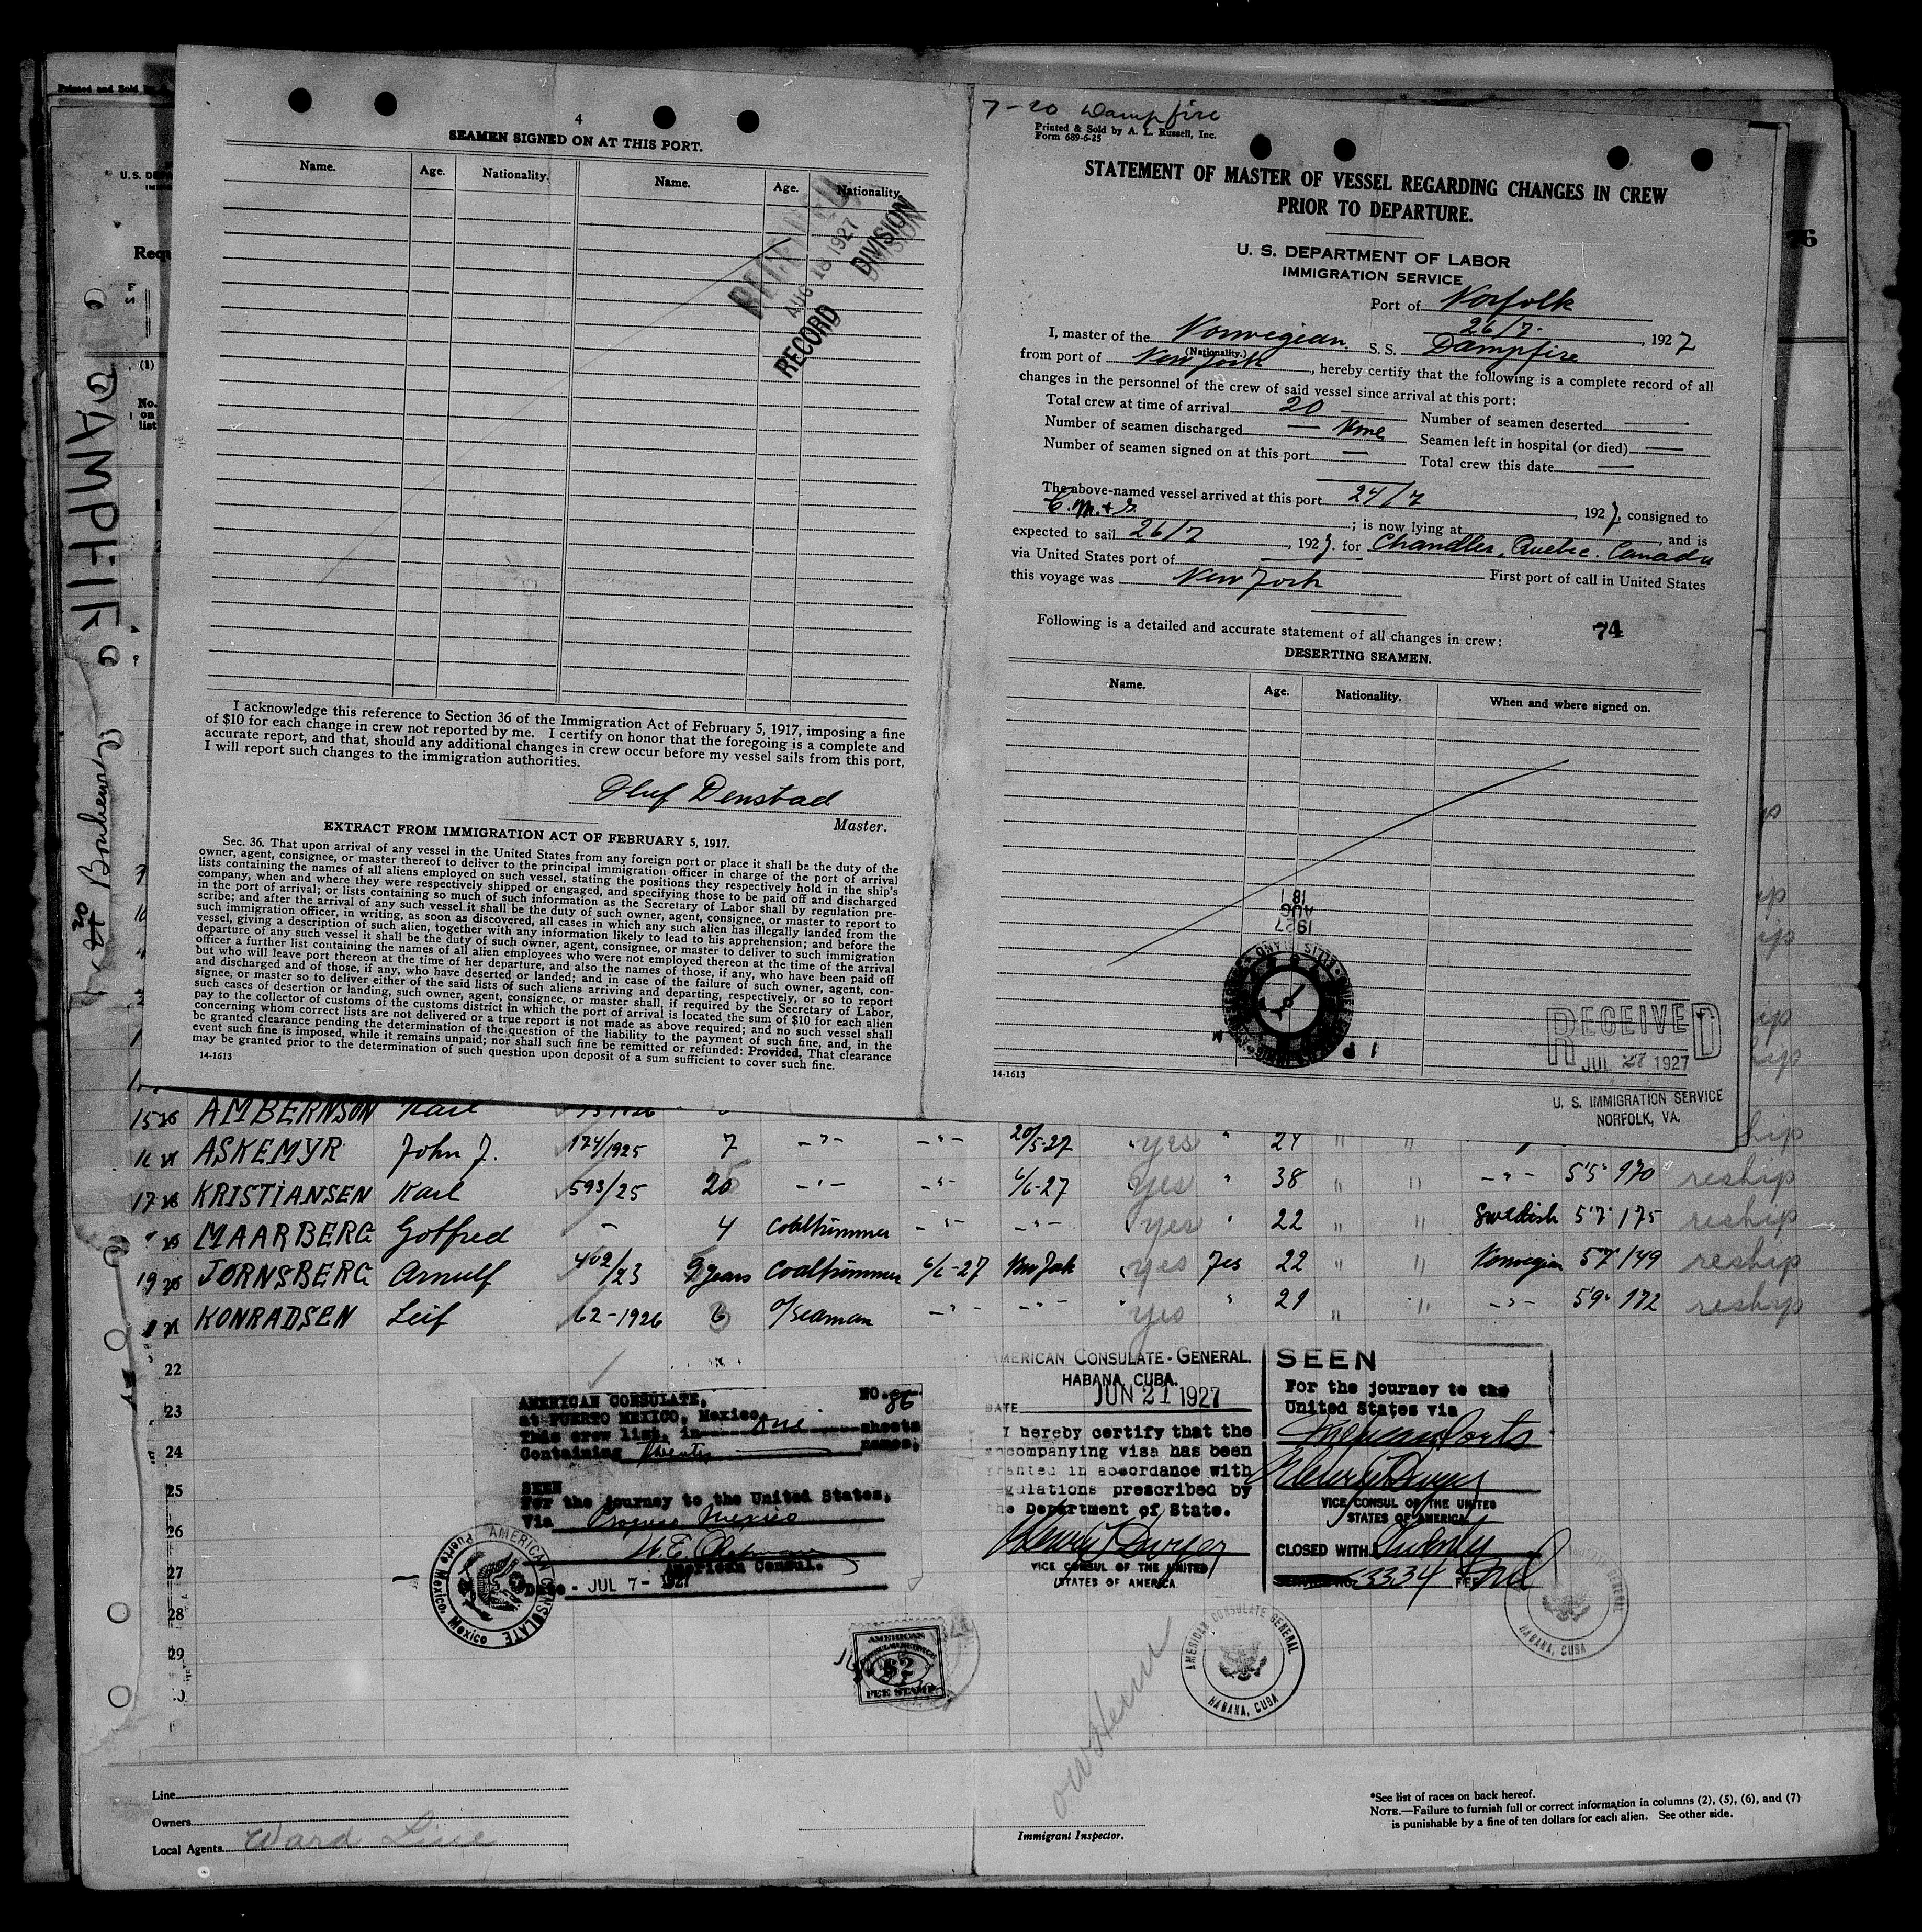 Printed and Sold
U. S. DEP
Requ
(1)
No.
on
list
DAMPFIRE
4
SEAMEN SIGNED ON AT THIS PORT.
Name. Age. Nationality. Name. Age. Nationality.
RECEIVED
AUG 18 1927
RECORD DIVISION
I acknowledge this reference to Section 36 of the Immigration Act of February 5, 1917, imposing a fine
of $10 for each change in crew not reported by me. I certify on honor that the foregoing is a complete and
accurate report, and that, should any additional changes in crew occur before my vessel sails from this port,
I will report such changes to the immigration authorities.
Oluf Denstad
Master.
EXTRACT FROM IMMIGRATION ACT OF FEBRUARY 5, 1917.
Sec. 36. That upon arrival of any vessel in the United States from any foreign port or place it shall be the duty of the
owner, agent, consignee, or master thereof to deliver to the principal immigration officer in charge of the port of arrival
lists containing the names of all aliens employed on such vessel, stating the positions they respectively hold in the ship's
company, when and where they were respectively shipped or engaged, and specifying those to be paid off and discharged
in the port of arrival; or lists containing so much of such information as the Secretary of Labor shall by regulation pre-
scribe; and after the arrival of any such vessel it shall be the duty of such owner, agent, consignee, or master to report to
such immigration officer, in writing, as soon as discovered, all cases in which any such alien has illegally landed from the
vessel, giving a description of such alien, together with any information likely to lead to his apprehension; and before the
departure of any such vessel it shall be the duty of such owner, agent, consignee, or master to deliver to such immigration
officer a further list containing the names of all alien employees who were not employed thereon at the time of the arrival
but who will leave port thereon at the time of her departure, and also the names of those, if any, who have been paid off
and discharged and of those, if any, who have deserted or landed; and in case of the failure of such owner, agent, con-
signee, or master so to deliver either of the said lists of such aliens arriving and departing, respectively, or so to report
such cases of desertion or landing, such owner, agent, consignee, or master shall, if required by the Secretary of Labor,
pay to the collector of customs of the customs district in which the port of arrival is located the sum of $10 for each alien
concerning whom correct lists are not delivered or a true report is not made as above required; and no such vessel shall
be granted clearance pending the determination of the question of the liability to the payment of such fine, and, in the
event such fine is imposed, while it remains unpaid; nor shall such fine be remitted or refunded: Provided, That clearance
may be granted prior to the determination of such question upon deposit of a sum sufficient to cover such fine.
14-1613
7-20 Dampfire
Printed & Sold by A. L. Russell, Inc.
Form 689-6-25
STATEMENT OF MASTER OF VESSEL REGARDING CHANGES IN CREW
PRIOR TO DEPARTURE.
U. S. DEPARTMENT OF LABOR
IMMIGRATION SERVICE
Port of Norfolk
26/7. , 1927
I, master of the Norwegian S. S. Dampfire
(Nationality.)
from port of New York , hereby certify that the following is a complete record of all
changes in the personnel of the crew of said vessel since arrival at this port:
Total crew at time of arrival 20 Number of seamen deserted —
Number of seamen discharged — None Seamen left in hospital (or died) —
Number of seamen signed on at this port — Total crew this date —
The above-named vessel arrived at this port 24/7 , 1927, consigned to
; is now lying at , and is
expected to sail 26/7 , 1927. for Chandler, Quebec. Canada
via United States port of — First port of call in United States
this voyage was New York
Following is a detailed and accurate statement of all changes in crew: 74
DESERTING SEAMEN.
Name. Age. Nationality. When and where signed on.
1927
AUG
18
RECEIVED
JUL 27 1927
U. S. IMMIGRATION SERVICE
NORFOLK, VA.
14-1613
76
15 AMBERNSON Karl
16 ASKEMYR John J. 174/1925 7 -"- -"- 20/5-27 yes " 24 " " hip
17 KRISTIANSEN Karl 593/25 20 -"- -"- 6/6-27 yes " 38 " " -"- 5'5" 170 reship
MAARBERG Gotfred - 4 Coaltrimmer -"- -"- yes " 22 " " Swedish 5'7" 175 reship
19 JØRNSBERG Arnulf 402/23 years Coaltrimmer 6/6-27 New York yes Yes 22 " " Norwegian 5'7 149 reship
KONRADSEN Leif 62-1926 6 O/Seaman -"- -"- yes " 21 " " -"- 5'9" 172 reship
22
23
24
25
26
27
28
29
AMERICAN CONSULATE, NO. 86
at PUERTO MEXICO, Mexico.
This crew list, in one sheets
Containing Twenty names.
SEEN
For the journey to the United States,
Via Progreso Mexico
American Consul.
Date - JUL 7 - 1927
AMERICAN CONSULATE
Puerto Mexico, Mexico
AMERICAN
$2
FEE STAMP
AMERICAN CONSULATE-GENERAL.
HABANA, CUBA.
DATE JUN 21 1927
I hereby certify that the
accompanying visa has been
granted in accordance with
regulations prescribed by
the Department of State.
VICE CONSUL OF THE UNITED
STATES OF AMERICA
SEEN
For the journey to the
United States via
Mexican Ports
VICE CONSUL OF THE UNITED
STATES OF AMERICA
CLOSED WITH Twenty
SERVICE NO. 3334 FEE
AMERICAN CONSULATE GENERAL
HABANA, CUBA
HABANA, CUBA
Line
Owners
Local Agents Ward Line
Immigrant Inspector.
*See list of races on back hereof.
NOTE.—Failure to furnish full or correct information in columns (2), (5), (6), and (7)
is punishable by a fine of ten dollars for each alien. See other side.